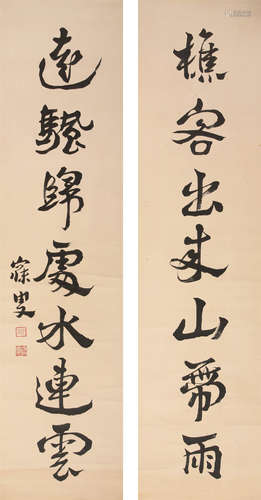 樵客出來山帶雨
遠驂歸處水連雲
寐叟